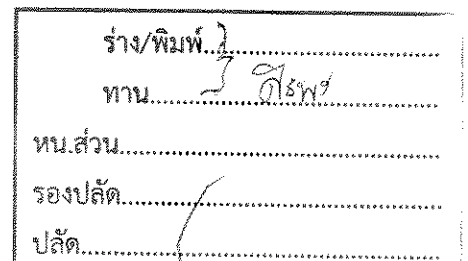 ร่าง/พิมพ์
ทาน
หน.ส่วน
รองปลัด
ปลัด